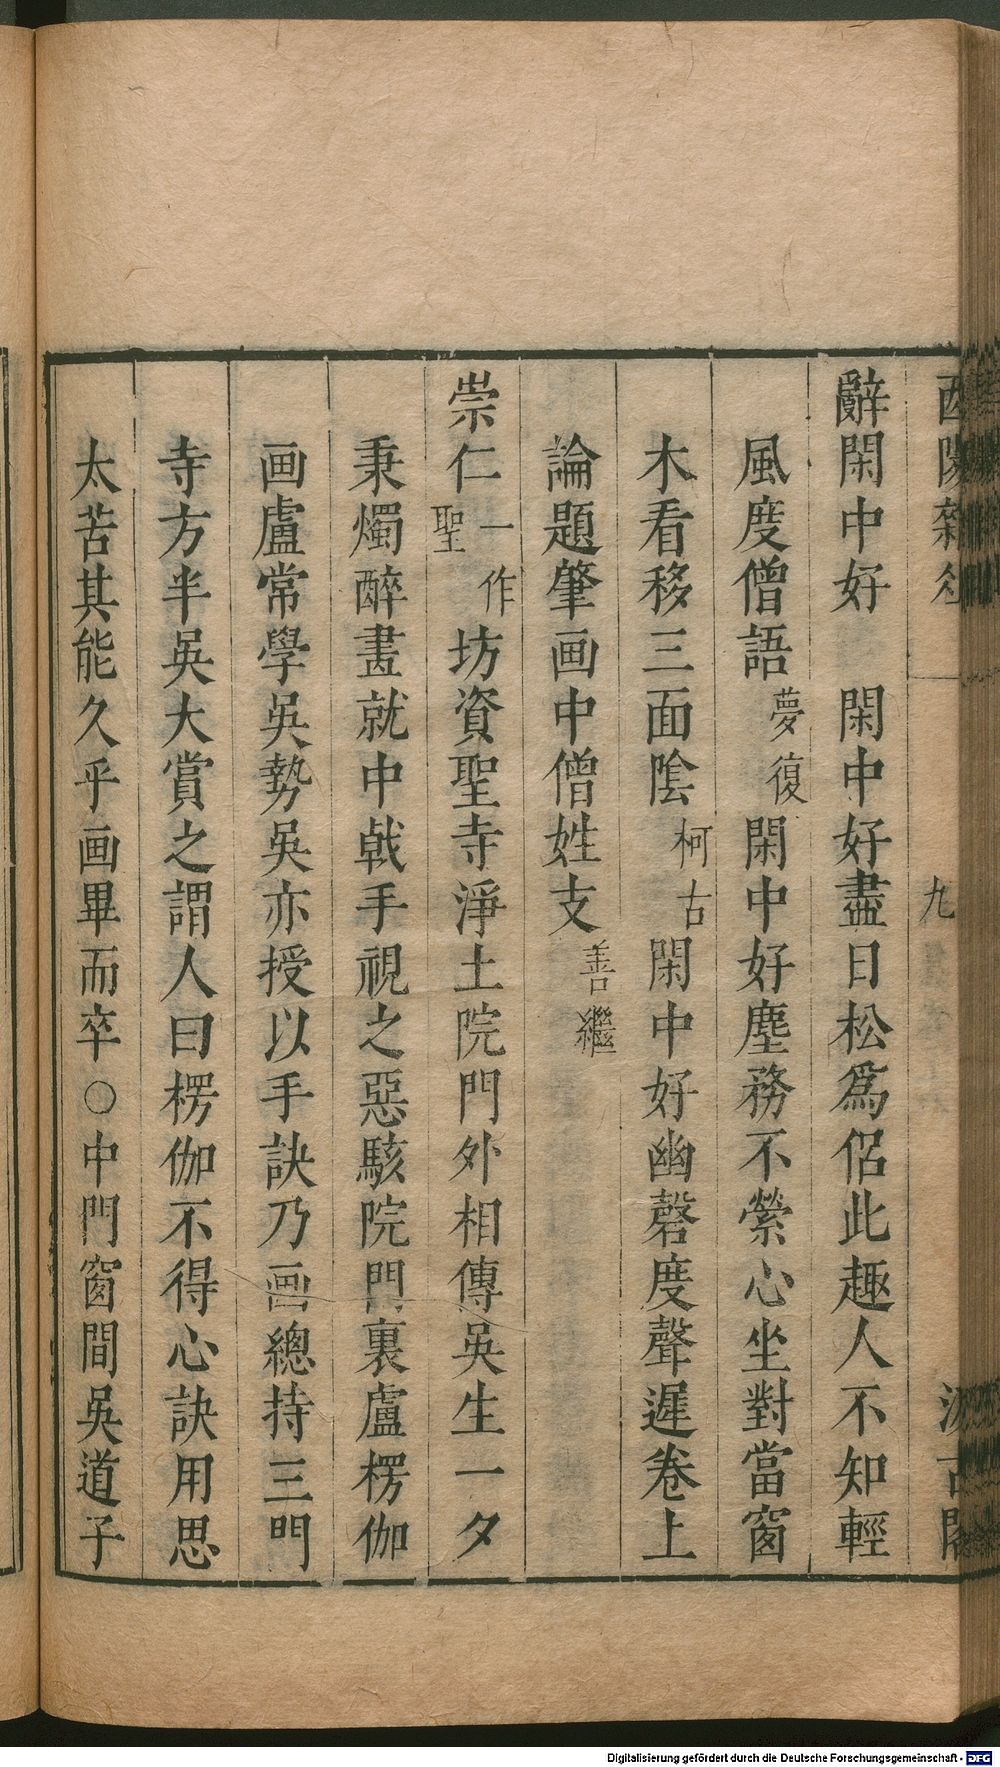 酉陽雜俎 九 汲古閣
辭閑中好　閑中好盡日松爲侶此趣人不知輕
風度僧語夢復閑中好塵務不縈心坐對當窗
木看移三面陰柯古閑中好幽磬度聲遲卷上
論題肇画中僧姓支善繼
崇仁一作聖坊資聖寺淨土院門外相傳吳生一夕
秉燭醉畫就中戟手視之惡駭院門裏盧楞伽
画盧常學吳勢吳亦授以手訣乃画總持三門
寺方半吳大賞之謂人曰楞伽不得心訣用思
太苦其能久乎画畢而卒〇中門窗間吳道子
Digitalisierung gefördert durch die Deutsche Forschungsgemeinschaft - DFG